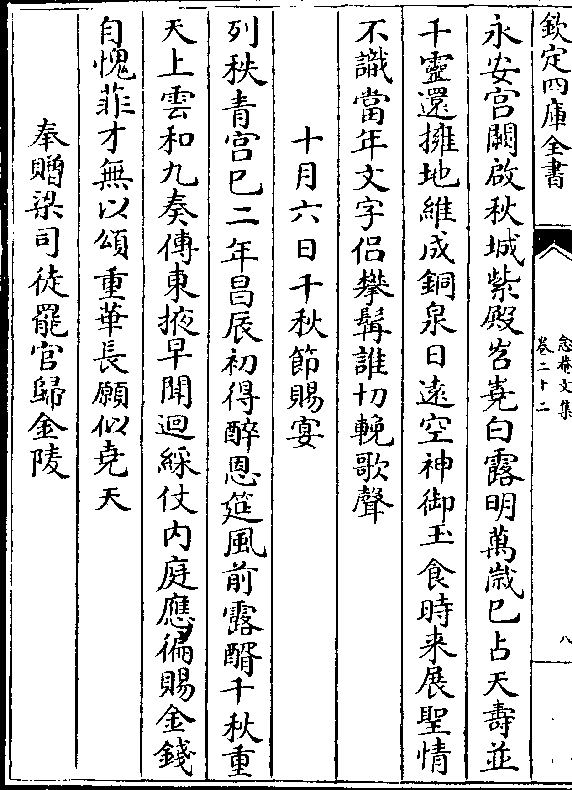 欽定四庫全書
念菴文集
卷二十二
八
永安宮闕啟秋城紫殿岧嶤白露明萬嵗已占天壽並
千靈還擁地維成銅泉日遠空神御玉食時来展聖情
不識當年文字侣攀髯誰切輓歌聲
十月六日千秋節賜宴
列秩青宮已二年昌辰初得醉恩筵風前露醑千秋重
天上雲和九奏傳東掖早聞迴綵仗内庭應徧賜金錢
自愧菲才無以頌重華長願似堯天
奉贈梁司徒罷官歸金陵